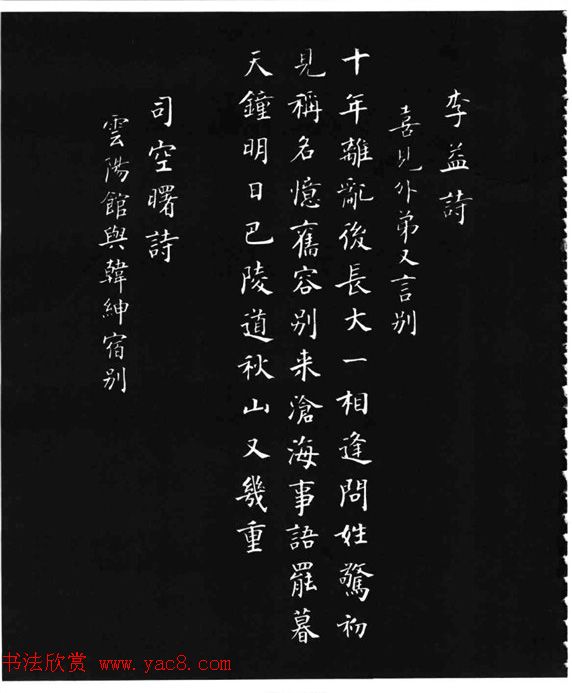 李益詩
喜見外弟又言别
十年離亂後長大一相逢問姓驚初
見稱名憶舊容别来滄海事語罷暮
天鐘明日巴陵道秋山又幾重
司空曙詩
雲陽館與韓紳宿别
书法欣赏 www.yac8.com